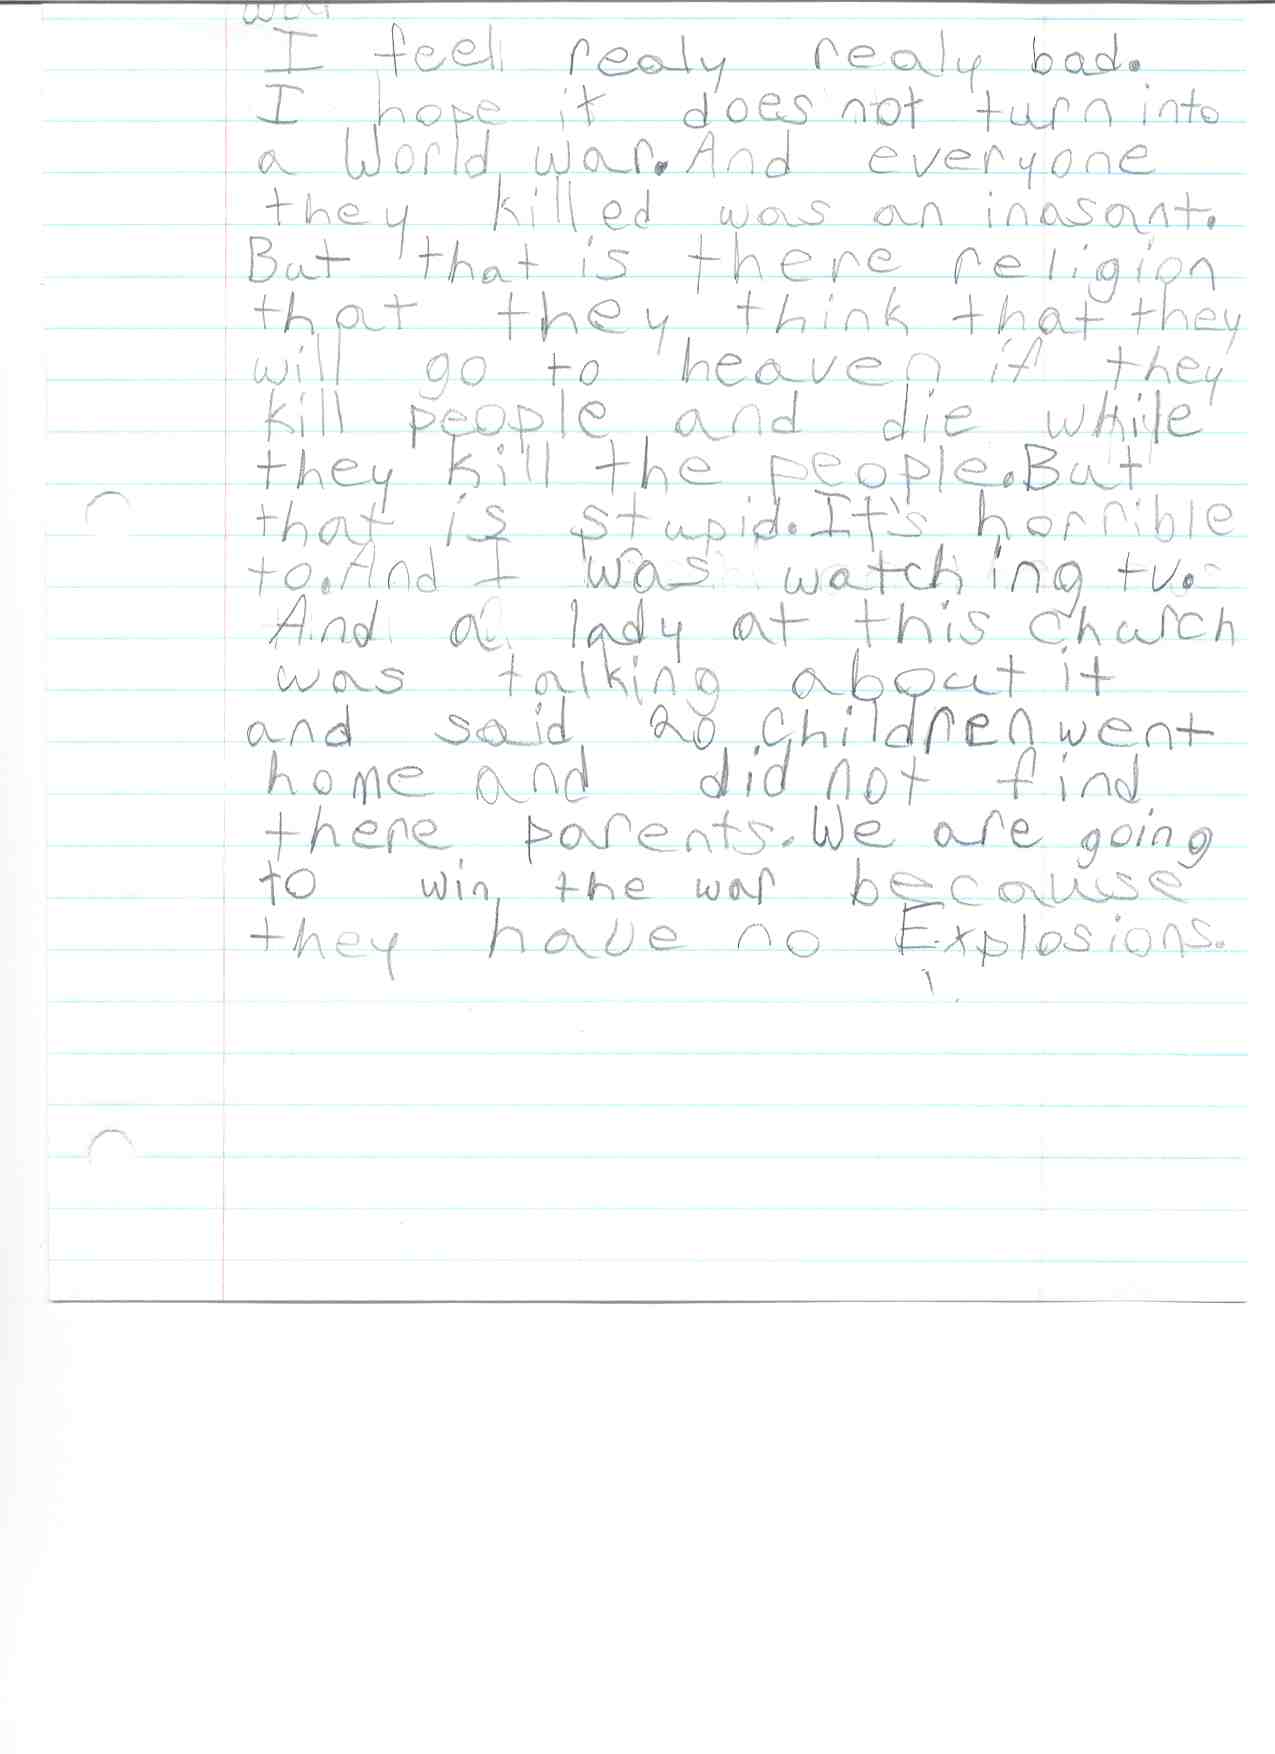 I feel realy realy bad.
I hope it does not turn into
a World war. And everyone
they killed was an inasant.
But that is there religion
that they think that they
will go to heaven if they
kill people and die while
they kill the people. But
that is stupid. It's horrible
to. And I was watching tv.
And a lady at this church
was talking about it
and said 20 children went
home and did not find
there parents. We are going
to win the war because
they have no Explosions.